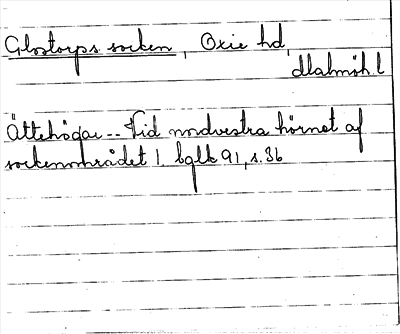 Glostorps socken, Oxie hd,
Malmöh. l
Ättehögar -- Vid nordvestra hörnet af
sockenområdet 1 bglk 91, s. 36